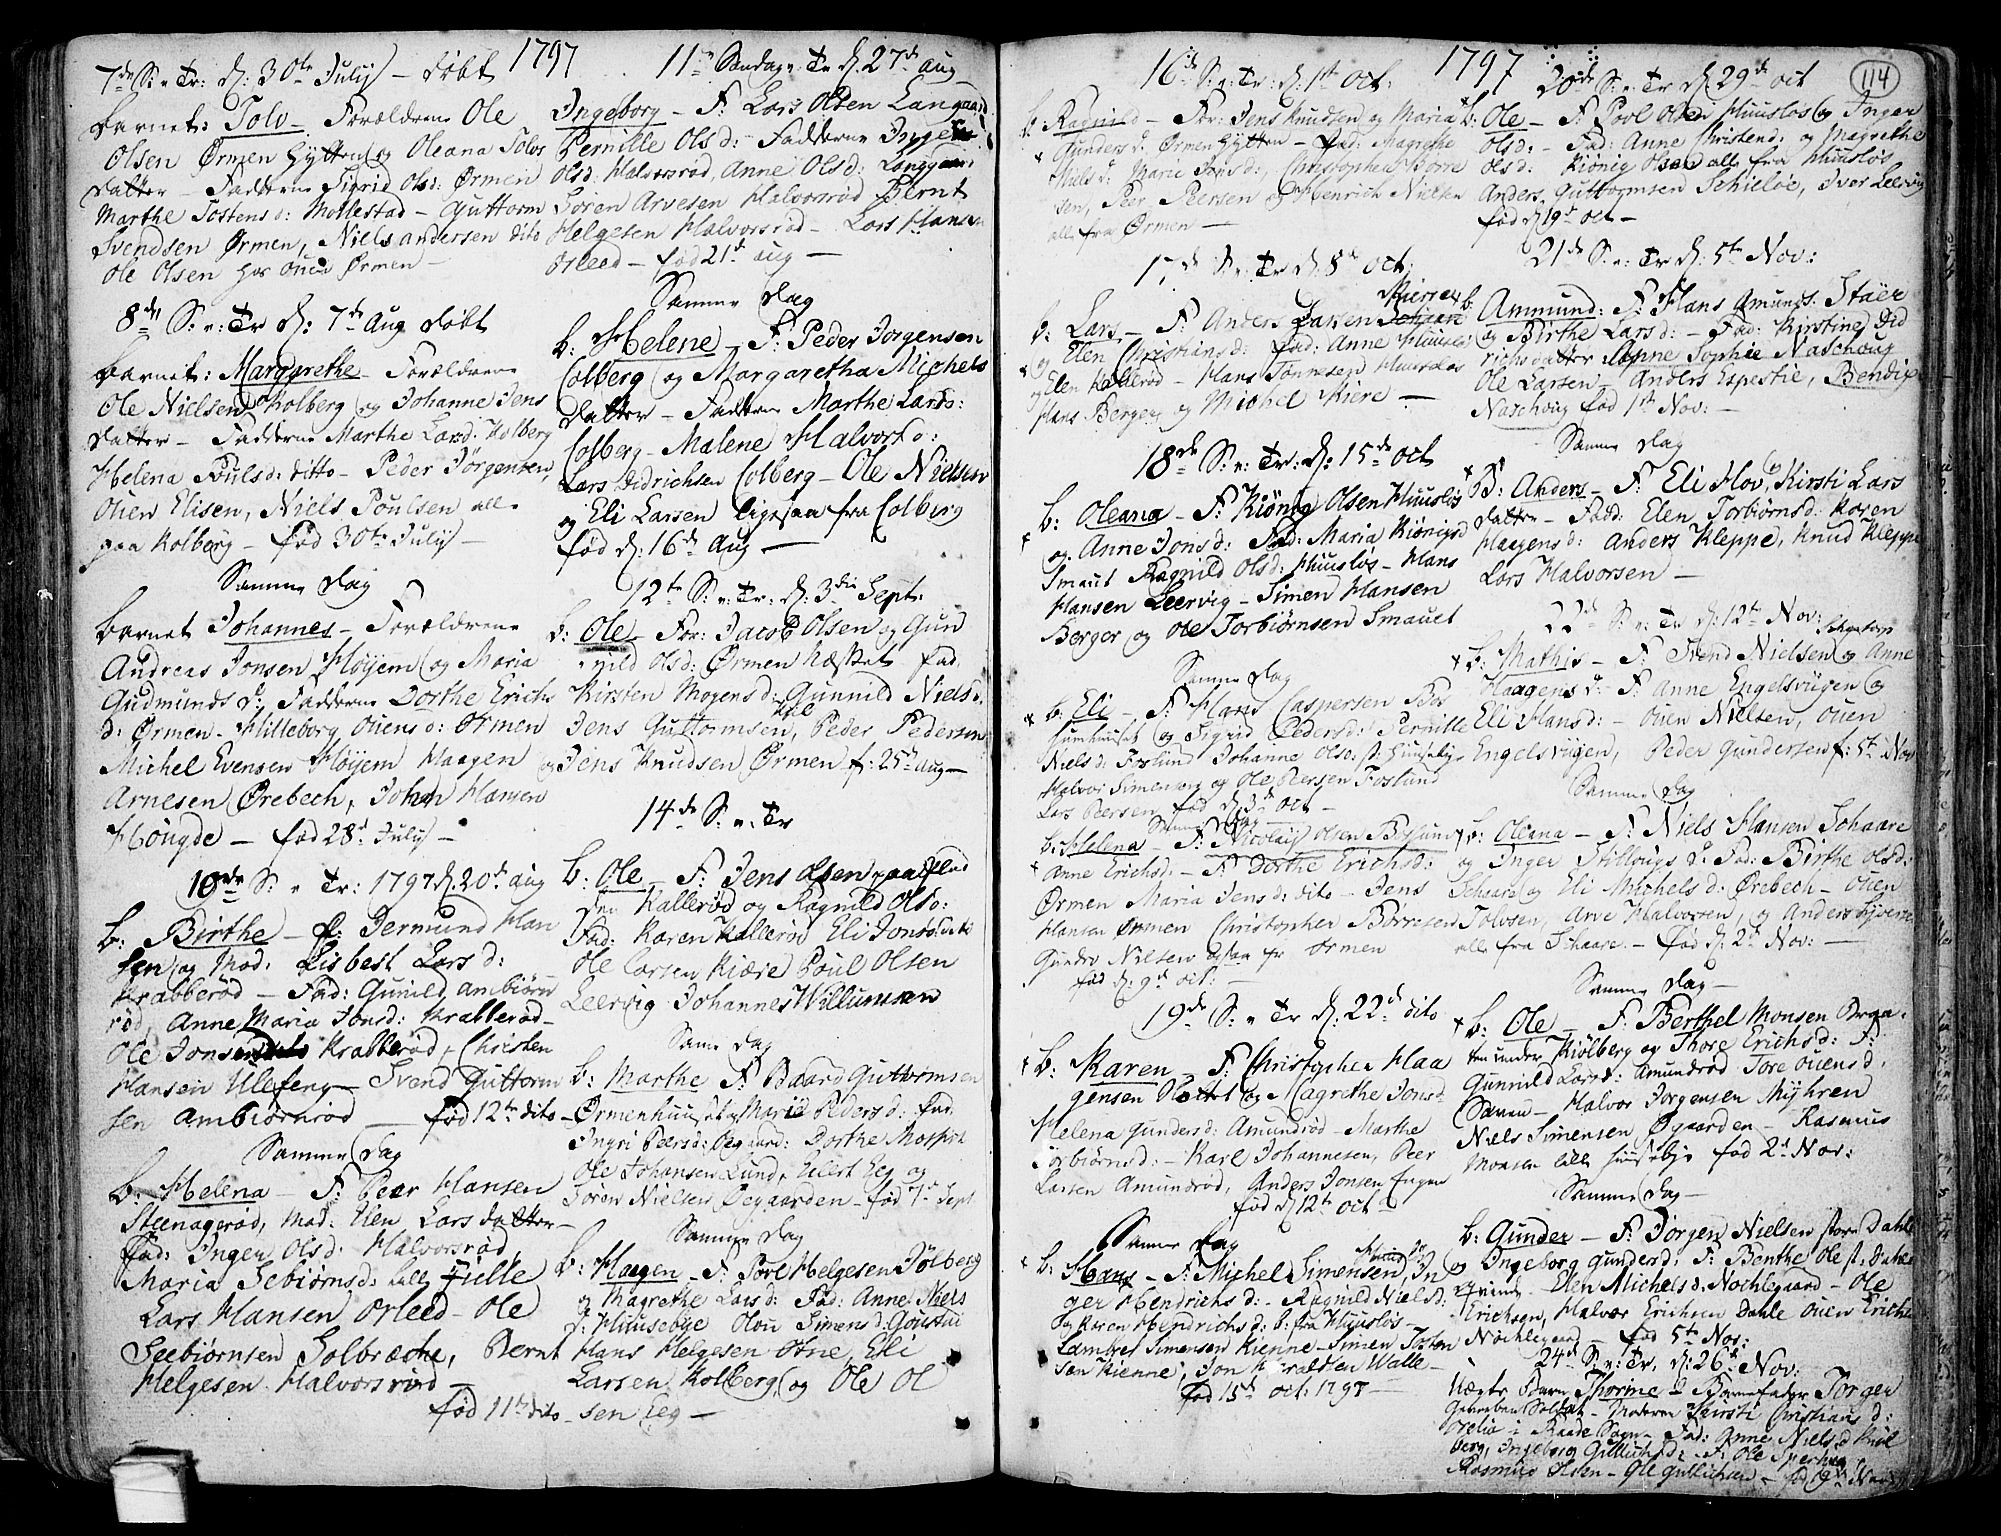 1797
7de S: e: Tr: d: 30te Julij — døbt
Barnet: Tolv — Forældrene Ole
Olsen Ørmen Hytten og Oleana Tolvs
datter — Fadderne Sigrid Olsd: Ørmen
Marthe Tostensd: Mollestad — Guttorm
Svendsen Ørmen, Niels Andersen dito
Ole Olsen hos Ouen Ørmen —
8de S: e: Tr d: 7de Aug døbt
Barnet: Margarethe — Forældrene
Ole Nielsen Kolberg og Johanne Jens
datter — Fadderne Marthe Larsd: Kolberg
Helena Poulsd: ditto — Peder Jørgensen,
Ouen Elisen, Niels Poulsen alle
paa Kolberg — fød 30te Julij —
Samme Dag
Barnet Johannes — Forældrene
Andreas Jonsen Høyem og Maria
Gudmunds d: Fadderne Dorthe Erichs
d: Ørmen — Hilleborg Ouens d: Ørmen
Michel Evensen Høyem Haagen
Arnesen Ørebech, Johan Hansen
Hougde — fød 28d Julij —
10de S: e Tr: 1797 d. 20de aug
b: Birthe — F: Jermund Han
sen og Mod. Lisbest Lars d:
Krabberød — Fad: Gunild Ambiørn
rød, Anne Maria Jonsd: Krabberød —
Ole Jonsen Krabberød, Christen
Hansen Ulefeng — Svend Guttorm
sen Ambiørnrød — fød 12te dito —
Samme Dag
b: Helena — F: Peer Hansen
Steenagerød, Mod: Elen Lars datter —
Fad: Inger Olsd: Halvorsrød,
Maria Sebiørnsd: Lille
Lars Hansen Orleed — Ole
Seebiørnsen Solbræche, Bernt
Helgesen Halvorsrød —
fød 11te dito —
11te Søndag e Tr d: 27de aug
Ingeborg — F: Lars Olsen Langaard
Pernille Olsd: Fadderne Inger
Olsd: Halvorsrød, Anne Olsd: Langgaard
Søren Arvesen Halvorsrød Bernt
Helgesen Halvorsrød — Lars Hansen
Orleed — fød 21de aug —
Samme Dag
b: Helene — F: Peder Jorgensen
Colberg og Margaretha Michels
datter — Fadderne Marthe Larsd:
Colberg — Malene Halvorsd:
Lars Didrichsen Colberg — Ole Nielsen
og Eli Larsen ligesaa fra Colberg
fød d: 16de Aug —
12te S: e: Tr: d: 3die Sept:
b: Ole — For: Jacob Olsen og Gun
nild Olsd: Ørmen Fad.
Kirsten Mogens d: Gunnild Niels d.
Jens Guttormsen, Peder Pedersen
og Jens Knudsen Ørmen f: 25de aug —
14de S: e: Tr
b: Ole — F: Jens Olsen paa
Kallerød og Ragnild Olsd:
Fad: Karen Kallerød Eli Jonsd: dito
Ole Larsen Kiære Poul Olsen
Leervig Johannes Willumsen
Samme Dag
b: Marthe F: Baard Guttormsen
Ørmenhuuset og Marie Peders d: Fad.
Ingri Peersd: Dorthe
Ole Johansen Lund, Eilert Eeg og
Søren Nielsen Øegaarden — fød 7d Sept
Samme Dag
b: Haagen — F: Poel Helgesen
og Magrethe Lars d: Fad: Anne Niels
d: Huusebye Simens d:
Hans Helgesen Eli
Larsen Kolberg og Ole Ol
sen Eeg —
114
1797
16de S: e: Tr: d: 1st Oct:
b: Ragnild — For: Jens Knudsen og Maria
Gunders d: Ørmen Hytten — Fad: Magrethe
Niels d: Marie Jonsd:, Christopher Børre
sen, Peer Peersen og Henrich Nielsen
alle fra Ørmen —
17de S: e: Tr d: 8de Oct:
b: Lars — F: Anders Larsen Kierser
og Elen Christians d: Fad: Anne Huusløs
og Elen Kallerød — Hans Huusløs
Hans Berger og Michel Kiere —
18de S: e: Tr: d: 15de Oct
b: Oleana — F: Kiønig Olsen Huusløs
og Anne Jons d: Fad: Maria Kiønigs d
Smaut Ragnild Olsd: Huusløs — Hans
Hansen Leervig — Simen Hansen
Berger og Ole Torbiørnsen Smauet
Samme Dag
b: Eli — F: Hans Caspersen
og Sigrid Peders d: Pernille
Niels d: Foslund Johanne Olsd:
Halvor Simensen og Ole Peersen Foslund
Lars Peersen fød d: 3de Oct —
Samme Dag —
b: Helena — F: Nicolaij Olsen
Anne Erichsd: — F: Dorthe Erichsd:
Ørmen Maria Jensd: dito — Jens
Hansen Ørmen Christopher Børresen
Gunder Nielsen Ørmen
fød d: 9de Oct: —
19de S: e Tr d: 22de dito
b: Karen — F: Christopher Haa
gensen og Magrethe Jonsd:
Helena Gundersd: Amundrød — Marthe
Torbiørnsd: — Karl Johannesen, Peer
Larsen Amundrød, Anders Jonsen Engen
fød d 12te Oct —
Samme Dag
b: Hans — F: Michel Simensen, In
ger Hendrichs d: — Ragnild Niels d:
og Karen Hendrichs d: b: fra Huusløs —
Simensen Kienne — Simen Josten
sen Kienne, Jon Walle —
fød 15de Oct: 1797 —
20de S: e: Tr d 29de Oct
b: Ole — F: Poel Olsen Huusløs og Inger
Olsd: — Fad: Anne Christend: og Magrethe
Olsd: Kiønig Olsen alle fra Huusløs
Anders Guttormsen Schieløe, Iver Leervig
fød d 19d Oct —
21de S: e: Tr d: 5te Nov:
b: Ammund: F: Hans Amunds: Staer
og Birthe Lars d: — Fad: Kirstine Did
richs datter Anne Sophie Naschoug
Ole Larsen — Anders Espestie, Bendix
Naschoug fød 1st Nov: —
Samme Dag
B: Anders — F: Eli Hov, Kirsti Lars
datter — Fadd: Elen Torbiørnsd: Karen
Haagens d: Anders Kleppe, Knud Kleppe
Lars Halvorsen —
22de S: e Tr d: 12te Nov:
b: Mathis — F: Svend Nielsen og Anne
Haagens d: — F: Anne Engelsvigen og
Eli Hansd: — Ouen Nielsen, Ouen
Engelsvigen, Peder Gundersen f: 5te Nov
Samme Dag
b: Oleana — F: Niels Hansen Schaare
og Inger d: Fad: Birthe Olsd:
Schaare og Eli Michels d: Ørebech — Ouen
Tolvsen, Arve Halvorsen, og Anders
alle fra Schaare — fød d: 2de Nov: —
Samme Dag —
b: Ole — F: Berthel Monsen Braa
ten under Kiølberg og Thore Erichsd: F:
Gunnild Larsd: Amundrød Tore Ouens d.
— Halvor Jorgensen Myhren
Niels Simensen Øgaarden — Rasmus
Monsen lille Huusebye fød 2de Nov:
Samme Dag —
b: Gunder — F: Jorgen Nielsen store Dahle
og Ingeborg Gundersd: F: Benthe
Elen Michels d: Nochlegaard — Ole
Erichsen, Halvor Erichsen Dahle Ouen Erichs
Nochlegaard — fød 5te Nov:
24de S: e: Tr. d: 26de Nov:
Uægte Barn Thorine — Barnefader Torger
Soldat — Moderen Kirsti Christians d:
i Raade Sogn — Fad: Anne Niels d: Kiøl
berg, Ingeborg Gullichsd: — F: Ole
Rasmus Olsen — Ole Gullichsen — fød 9de Nov